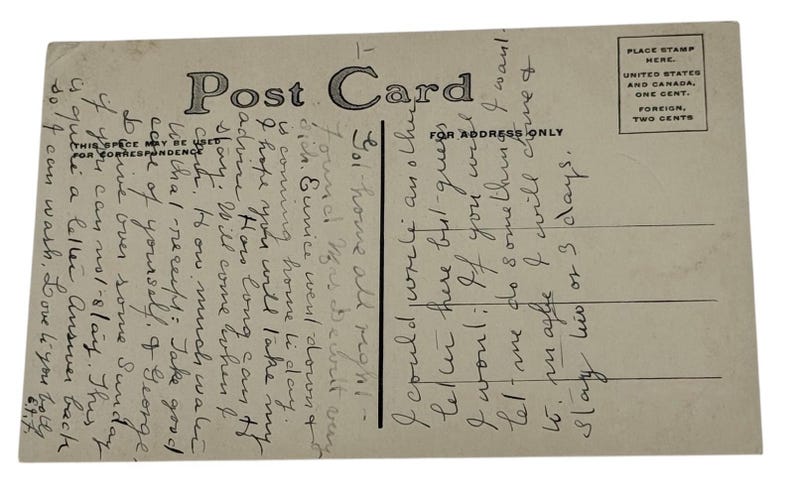 Post Card
THIS SPACE MAY BE USED
FOR CORRESPONDENCE
FOR ADDRESS ONLY
PLACE STAMP
HERE.
UNITED STATES
AND CANADA,
ONE CENT.
FOREIGN,
TWO CENTS
Got home all right -
found Mrs. very
sick. Eunice went down &
is coming home to day.
I hope you will take my
advice How long can
stay. Will come when I
can. How much water
with that receipt: Take good
care of yourself. & George
Drive over some Sunday
if you can not stay. This
is quite a letter Answer back
so I can wash. Love to you both
E.I.F.
I could write another
letter here but guess
I wont: If you will
let me do something I want
to. maybe I will come &
stay two or 3 days.